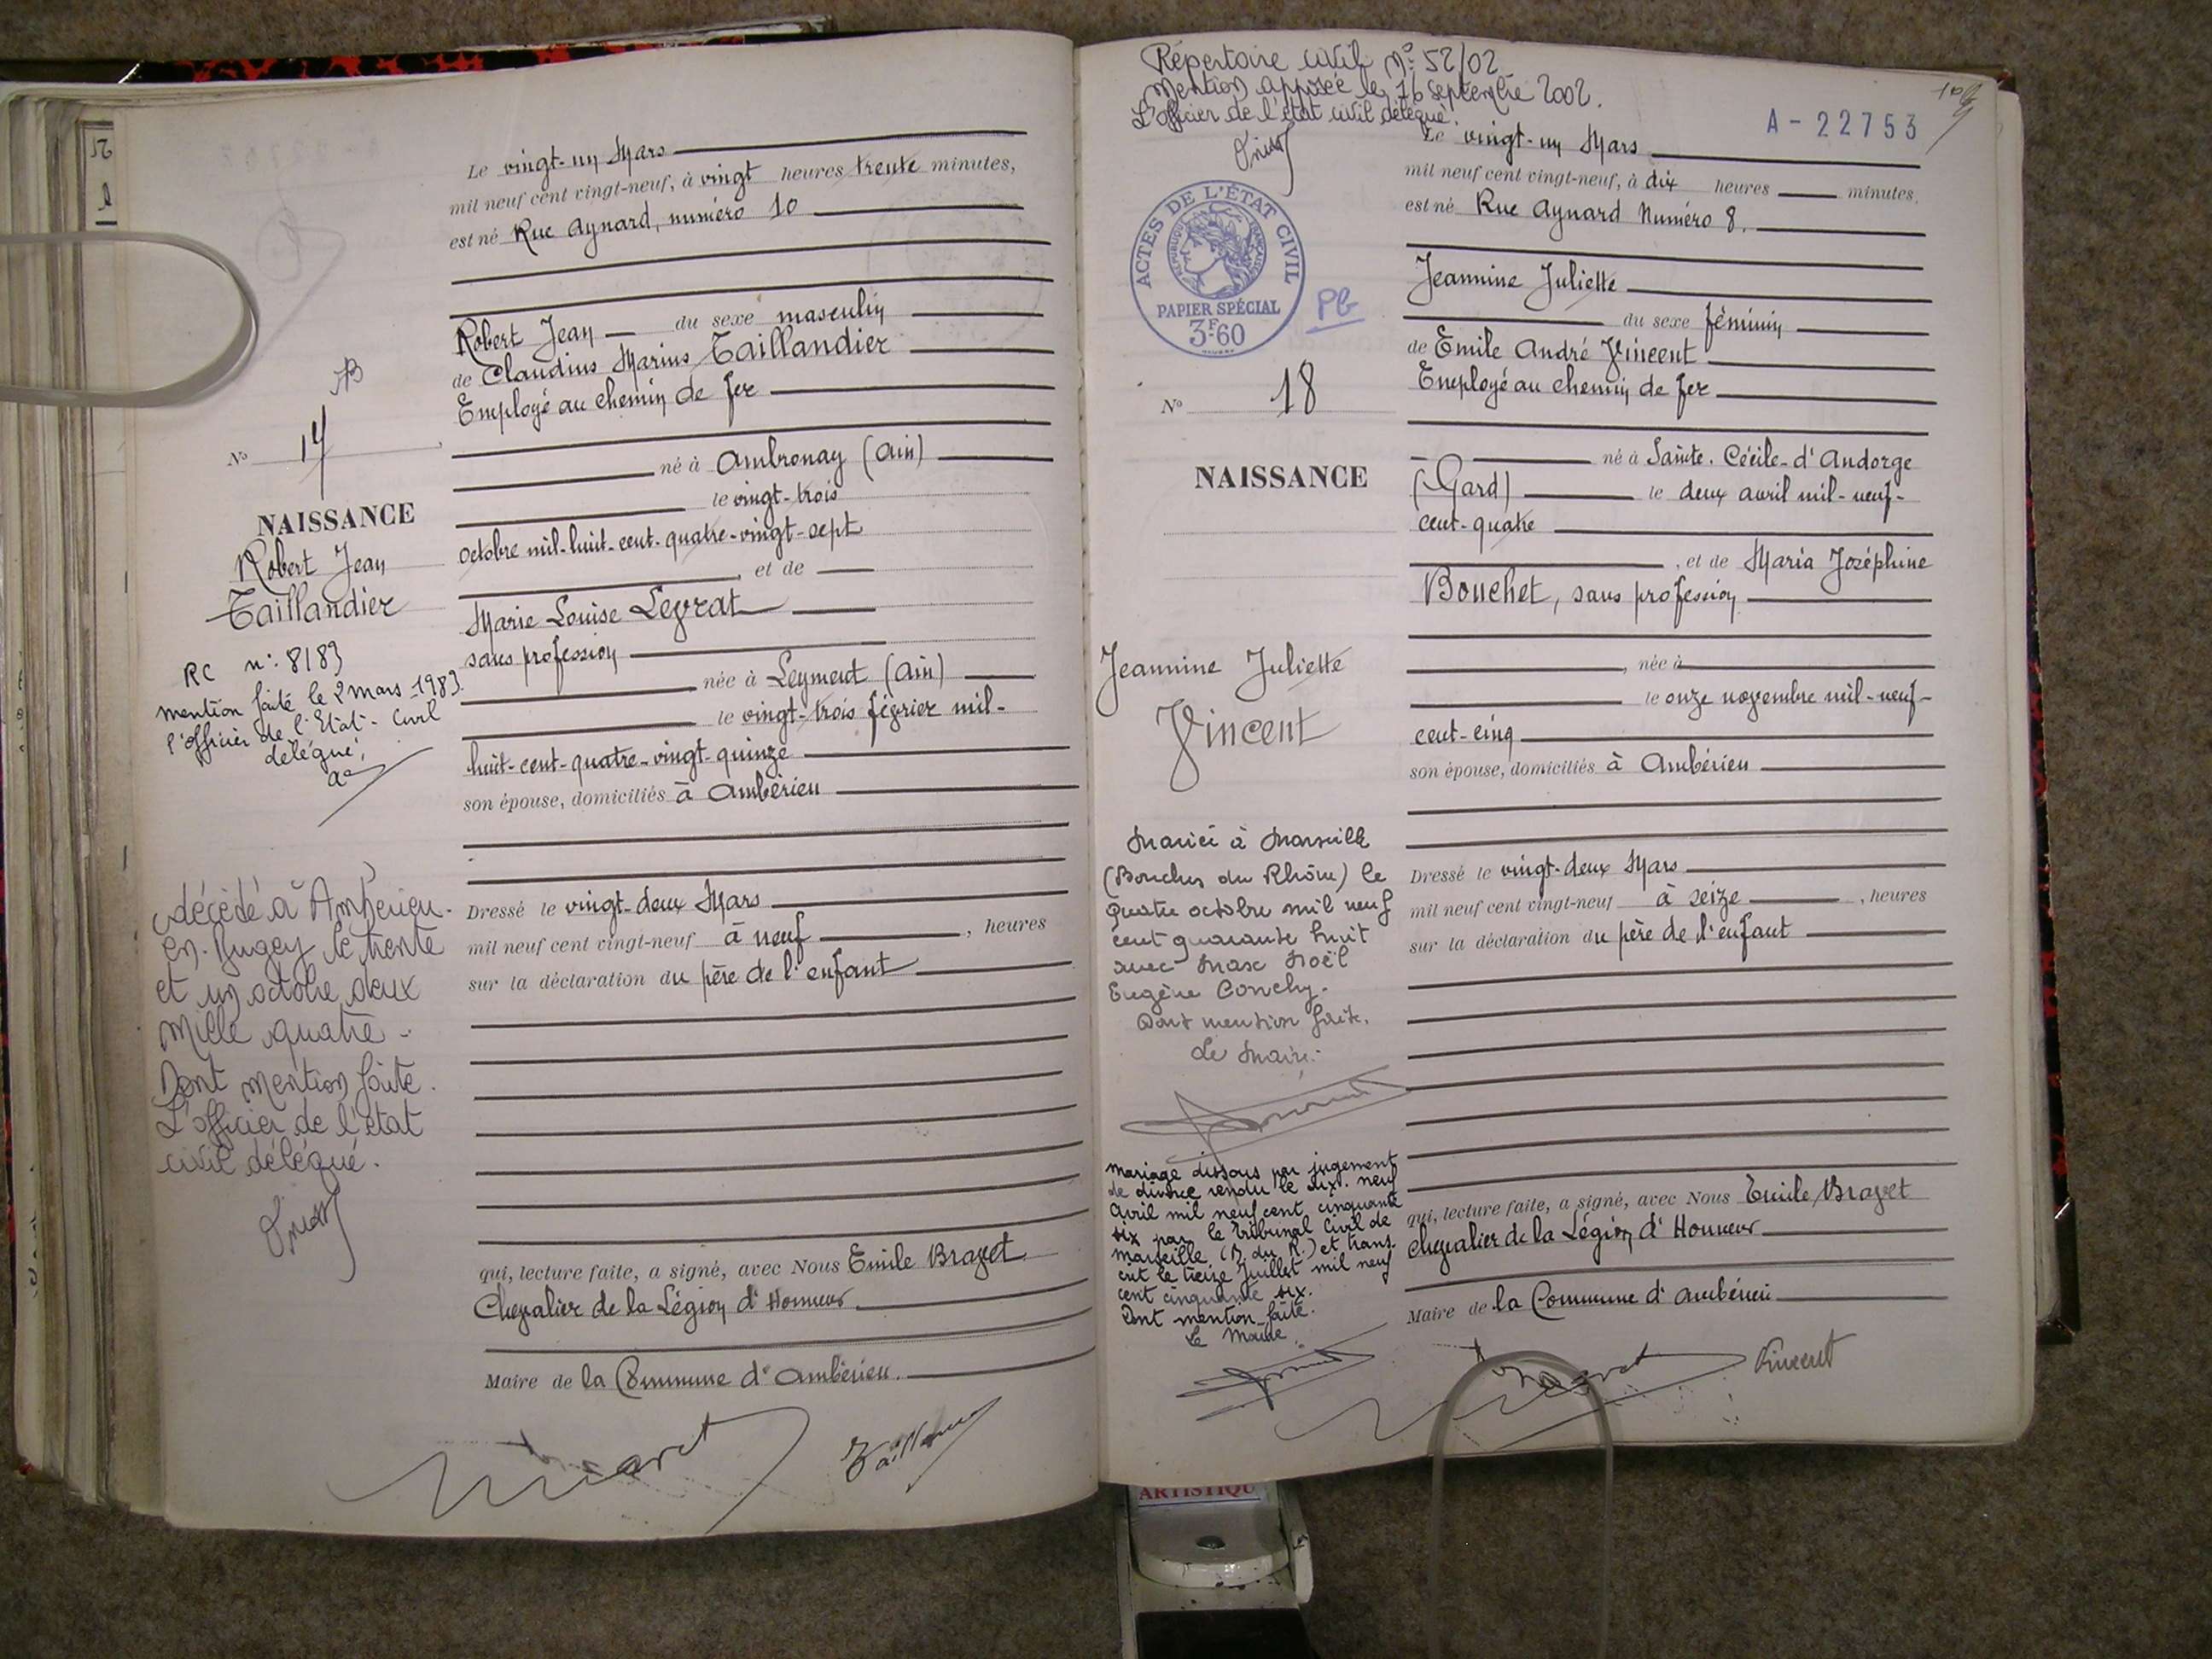 Le vingt-un Mars
mil neuf cent vingt-neuf, à vingt heures trente minutes,
est né Rue Aynard, numéro 10
Robert Jean du sexe masculin
de Claudius Marius Taillandier
Employé au chemin de fer
né à Ambronay (Ain)
le vingt-trois
octobre mil-huit-cent-quatre-vingt-sept
, et de
Marie Louise Levrat
sans profession
née à Leyment (Ain)
le vingt-trois février mil-
huit-cent-quatre-vingt-quinze
son épouse, domiciliés à Ambérieu
Dressé le vingt-deux Mars
mil neuf cent vingt-neuf à neuf , heures
sur la déclaration du père de l'enfant
qui, lecture faite, a signé, avec Nous Emile Bravet
Chevalier de la Légion d'Honneur
Maire de la Commune d'Ambérieu.
N° 17
NAISSANCE
Robert Jean
Taillandier
RC n°: 8183
mention faite le 2 mars 1983.
l'officier de l'Etat-Civil
délégué,
décédé à Ambérieu-
en-Bugey le trente
et un octobre deux
mille quatre -
Dont mention faite.
L'officier de l'état
civil délégué.
Répertoire civil n°: 52/02
Mention apposée le 16 septembre 2002.
L'officier de l'état civil délégué.
A-22753
Le vingt-un Mars
mil neuf cent vingt-neuf, à dix heures minutes,
est né Rue Aynard Numéro 8.
ACTES DE L'ÉTAT CIVIL
RÉPUBLIQUE FRANÇAISE
PAPIER SPÉCIAL
3F.60
PB
Jeannine Juliette
du sexe féminin
de Emile André Vincent
Employé au chemin de fer
né à Sainte-Cécile-d'Andorge
(Gard) le deux avril mil-neuf-
cent-quatre
, et de Maria Joséphine
Bouchet, sans profession
, née à
le onze novembre mil-neuf-
cent-cinq
son épouse, domiciliés à Ambérieu
Dressé le vingt-deux Mars
mil neuf cent vingt-neuf à seize , heures
sur la déclaration du père de l'enfant
qui, lecture faite, a signé, avec Nous Emile Bravet
Chevalier de la Légion d'Honneur
Maire de la Commune d'Ambérieu
Vincent
N° 18
NAISSANCE
Jeannine Juliette
Vincent
Mariée à Marseille
(Bouches du Rhône) le
quatre octobre mil neuf
cent quarante huit
avec Marc Noël
Eugène Conchy.
Dont mention faite.
Le Maire:
Mariage dissous par jugement
de divorce rendu le dix-neuf
Avril mil neuf cent cinquante
six par le Tribunal Civil de
Marseille (B. du R.) et trans-
crit le treize Juillet mil neuf
cent cinquante six.
Dont mention faite.
Le Maire.
ARTISTIQU